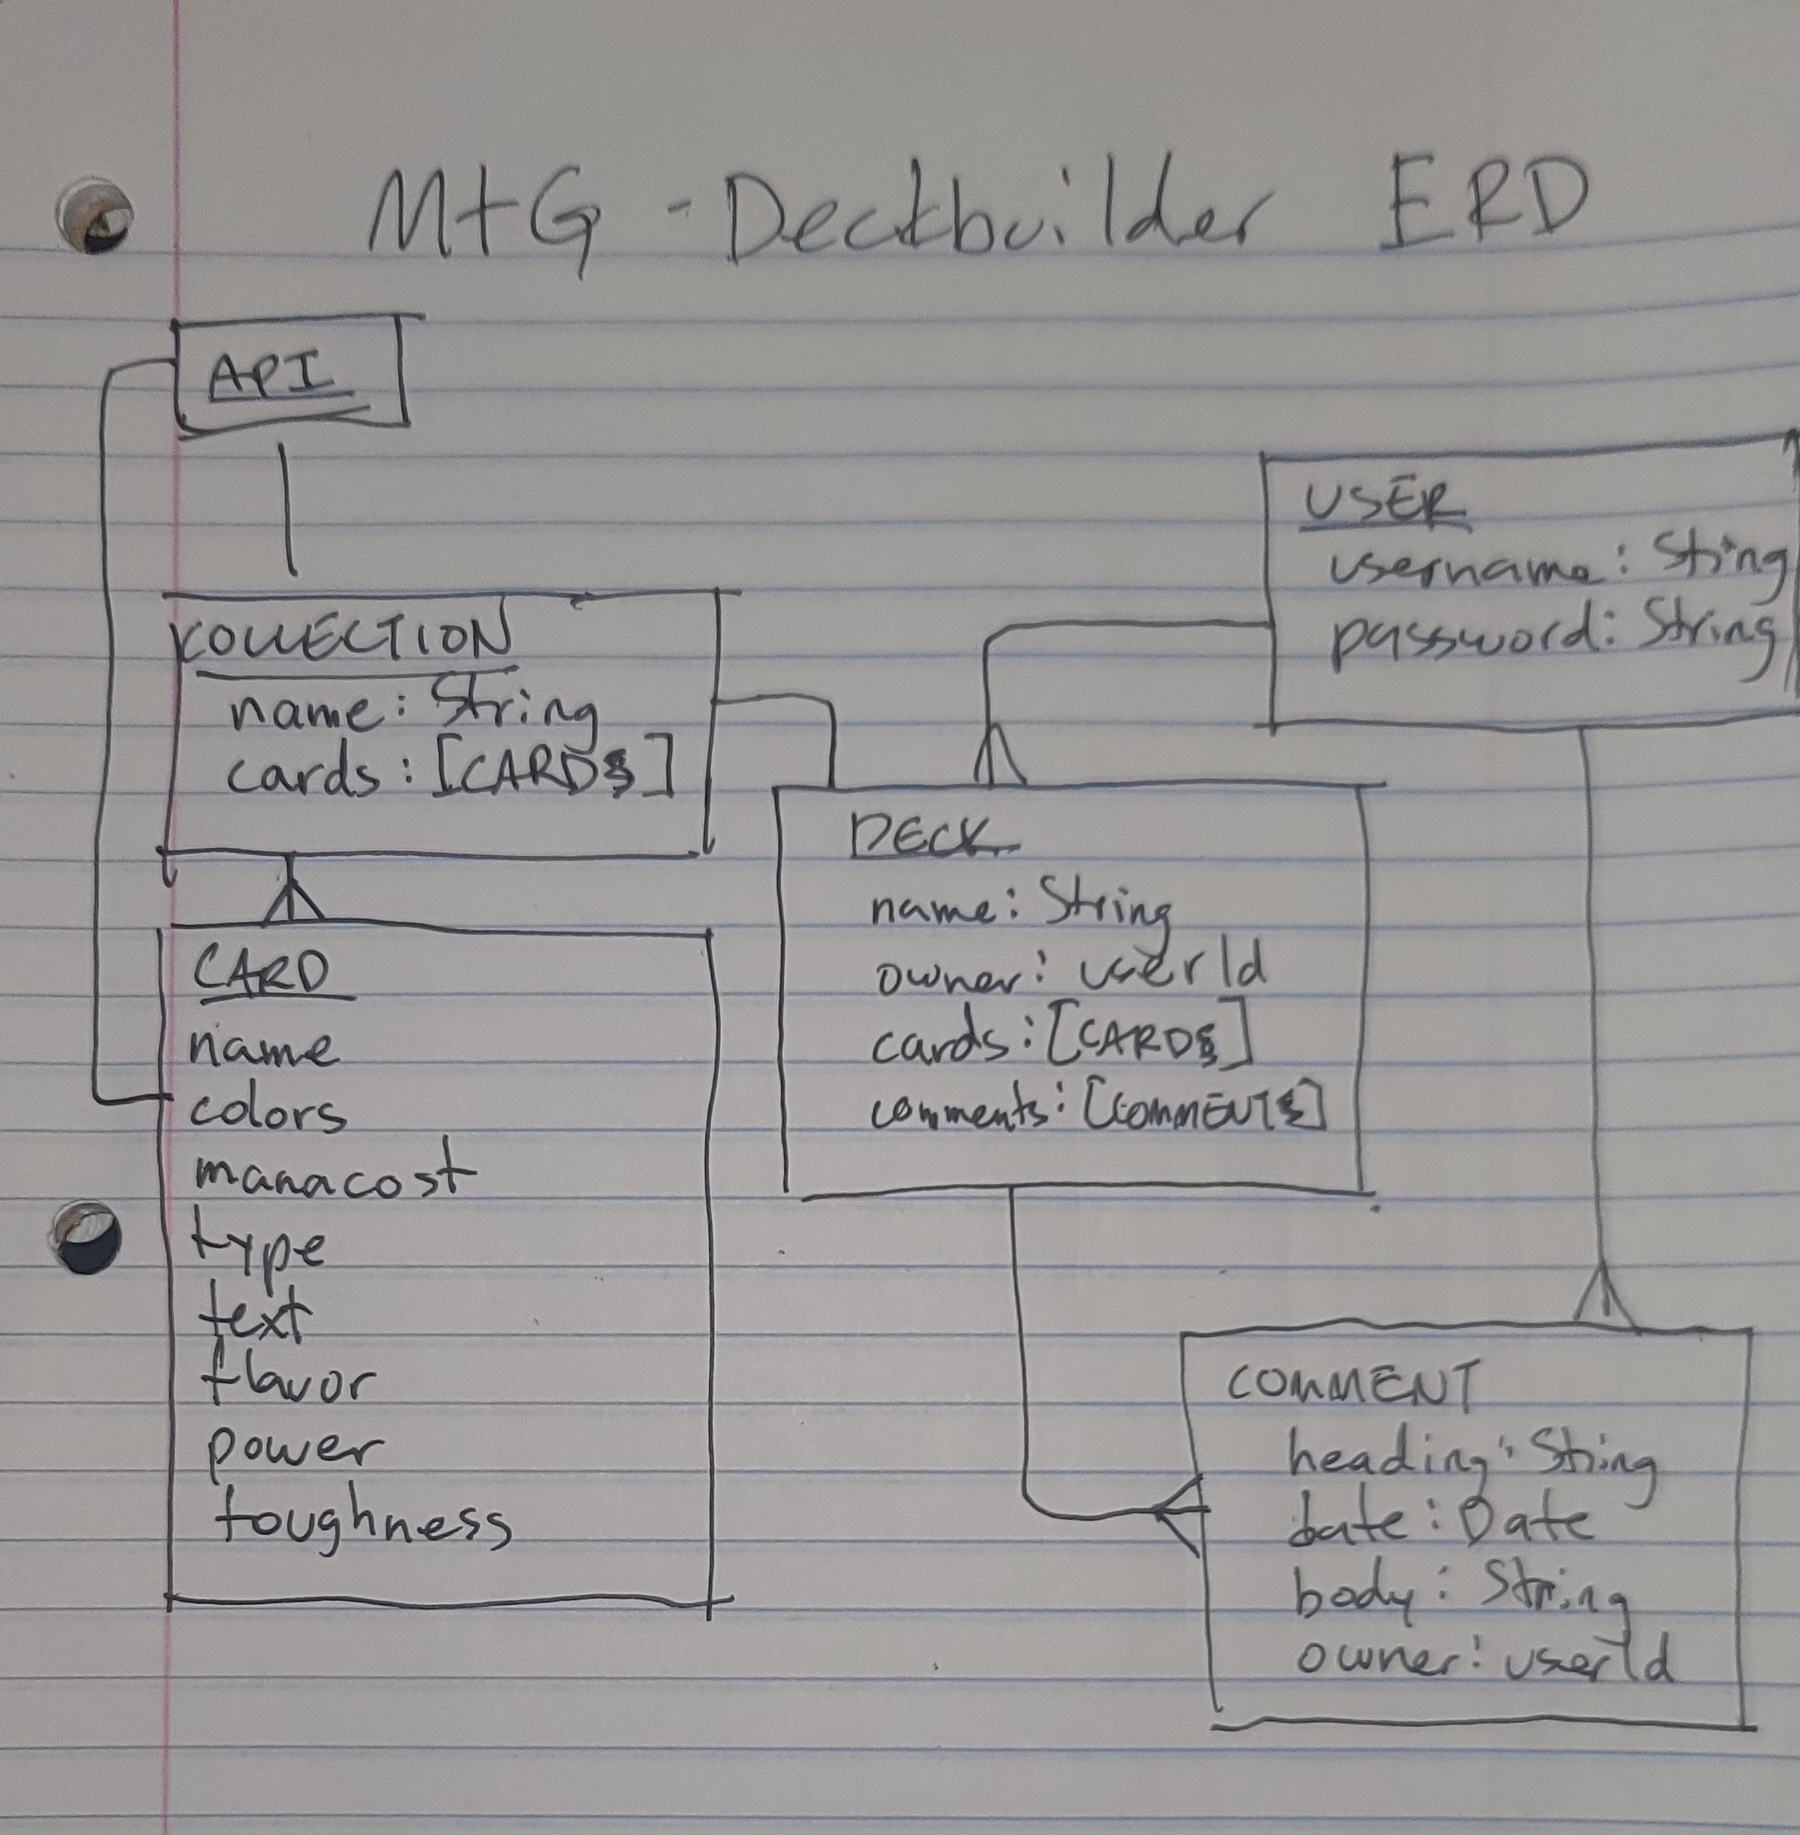 MtG - Deckbuilder ERD
API
KOLLECTION
name: String
cards: [CARDS]
CARD
name
colors
manacost
type
text
flavor
power
toughness
USER
username: String
password: String
DECK
name: String
owner: userId
cards: [CARDS]
comments: [COMMENTS]
COMMENT
heading: String
date: Date
body: String
owner: userId